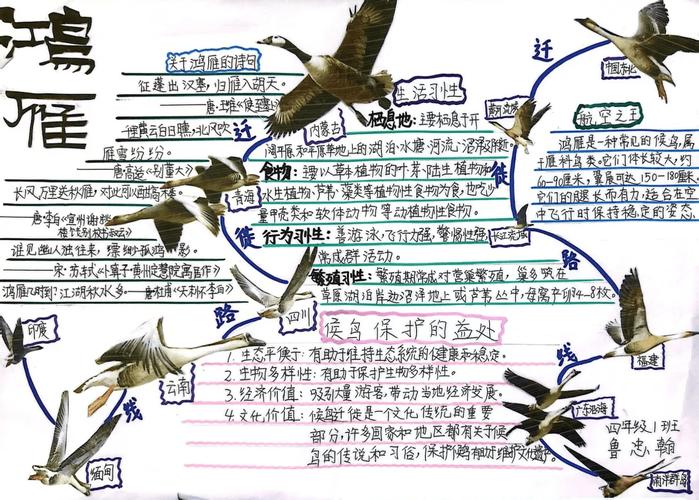 鸿雁
关于鸿雁的诗句
征蓬出汉塞，归雁入胡天。
——唐·王维《使至塞上》
千里黄云白日曛，北风吹
雁雪纷纷。
——唐·高适《别董大》
长风万里送秋雁，对此可以酣高楼。
——唐·李白《宣州谢朓
谁见幽人独往来，缥缈孤鸿影。
——宋·苏轼《卜算子·黄州定慧院寓居作》
鸿雁几时到，江湖秋水多。——唐·杜甫《天末怀李白》
迁
徙
路
线
内蒙古
青海
四川
云南
印度
缅甸
生活习性
栖息地：主要栖息于开
阔平原和平原草地上的湖泊、水塘、河流、沼泽
食物：主要以草本植物的叶、芽、陆生植物和
水生植物、芦苇、藻类等植物性食物为食，也吃少
量甲壳类和软体动物等动物性食物。
行为习性：善游泳，飞行力强，警惕性强
常成群活动。
繁殖习性：繁殖期常成对营巢繁殖，巢多筑在
草原湖泊岸边沼泽地上或芦苇丛中，每窝产卵4-8枚。
候鸟保护的益处
1. 生态平衡：有助于维持生态系统的健康和稳定。
2. 生物多样性：有助于保护生物多样性。
3. 经济价值：吸引大量游客，带动当地经济发展。
4. 文化价值：候鸟迁徙是一个文化传统的重要
部分，许多国家和地区都有关于候
鸟的传说和习俗，保护候鸟有助于维护文化遗产。
迁
徙
路
线
中国东北
长江流域
福建
广东沿海
南洋群岛
航空之王
鸿雁是一种常见的候鸟，属
于雁科鸟类。它们体长较大，约
60-90厘米，翼展可达150-180厘米。
它们的腿长而有力，适合在空
中飞行时保持稳定的姿态。
四年级1班
鲁忠翰